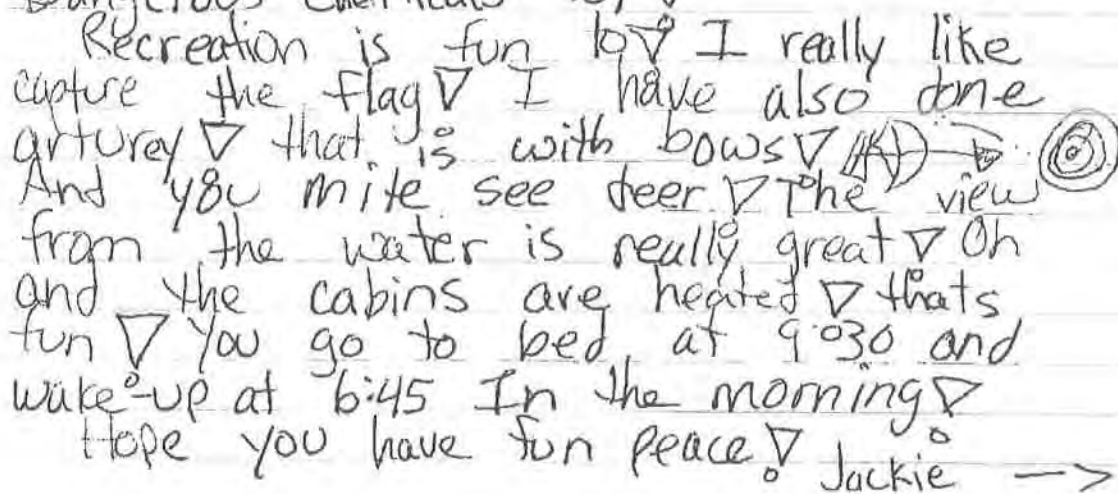 Dangerous Chemicals
Recreation is fun to! I really like
capture the flag! I have also done
arturey! that is with bows!
And you mite see deer! The view
from the water is really great! Oh
and the cabins are heated! thats
fun! You go to bed at 9:30 and
wake-up at 6:45 In the morning!
Hope you have fun peace!
Jackie —>